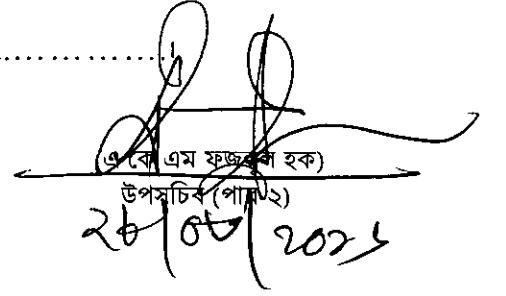 এ কে এম ফজলুল হক)
উপসচিব (পাস-২)
২৮/০৮/২০২১